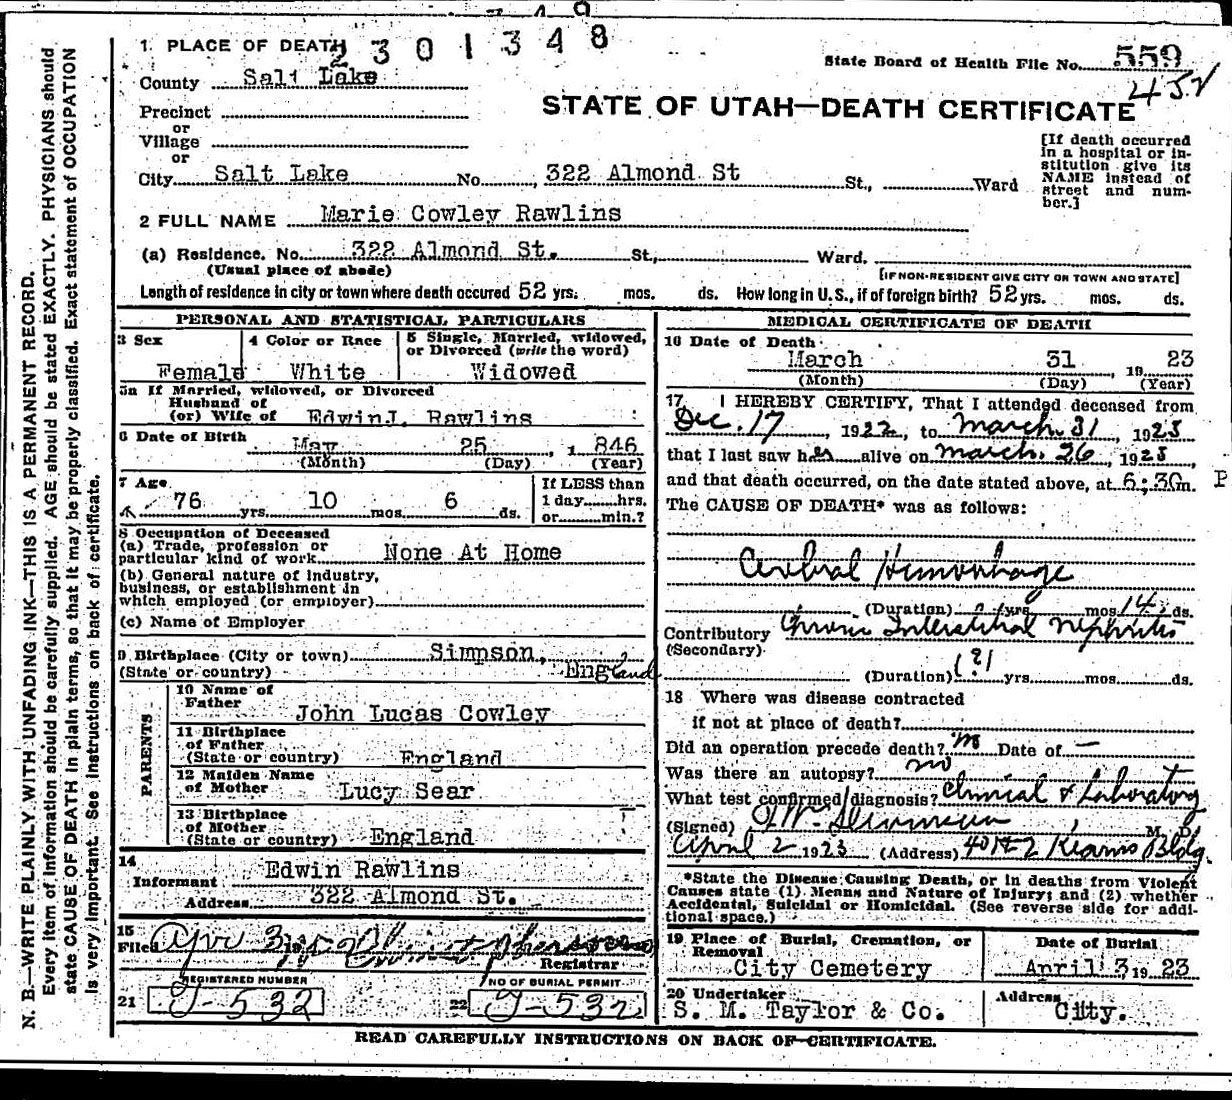 2301348
1. PLACE OF DEATH
State Board of Health File No. 559
452
County Salt Lake
STATE OF UTAH—DEATH CERTIFICATE
Precinct
or
Village
or
City Salt Lake No. 322 Almond St St., Ward
[If death occurred
in a hospital or in-
stitution give its
NAME instead of
street and num-
ber.]
2 FULL NAME Marie Cowley Rawlins
(a) Residence. No. 322 Almond St. St., Ward.
(Usual place of abode)
[IF NON-RESIDENT GIVE CITY OR TOWN AND STATE]
Length of residence in city or town where death occured 52 yrs. mos. ds. How long in U.S., if of foreign birth? 52 yrs. mos. ds.
PERSONAL AND STATISTICAL PARTICULARS
3 Sex
Female
4 Color or Race
White
5 Single, Married, widowed,
or Divorced (write the word)
Widowed
5a If Married, widowed, or Divorced
Husband of
(or) Wife of EdwinJ. Rawlins
6 Date of Birth May 25, 1 846
(Month) (Day) (Year)
7 Age
76 yrs. 10 mos. 6 ds.
If LESS than
1 day hrs.
or min.?
8 Occupation of Deceased
(a) Trade, profession or
particular kind of work None At Home
(b) General nature of industry,
business, or establishment in
which employed (or employer)
(c) Name of Employer
9 Birthplace (City or town) Simpson,
(State or country) England
PARENTS
10 Name of
Father John Lucas Cowley
11 Birthplace
of Father
(State or country) England
12 Maiden Name
of Mother Lucy Sear
13 Birthplace
of Mother
(State or country) England
14
Informant Edwin Rawlins
Address 322 Almond St.
15
Filed Apr 3
Registrar
REGISTERED NUMBER
21 J-532
NO OF BURIAL PERMIT
22 J-532
MEDICAL CERTIFICATE OF DEATH
16 Date of Death
March 31, 19 23
(Month) (Day) (Year)
17 I HEREBY CERTIFY, That I attended deceased from
Dec. 17, 1922, to March. 31, 1923
that I last saw her alive on March. 26, 1923,
and that death occurred, on the date stated above, at 6:30 m. P
The CAUSE OF DEATH* was as follows:
Cerebral Hemorrhage
(Duration) yrs. mos. 14 ds.
Contributory Chronic Interstitial Nephritis
(Secondary)
(Duration) (?) yrs. mos. ds.
18 Where was disease contracted
if not at place of death?
Did an operation precede death? no Date of —
Was there an autopsy? no
What test confirmed diagnosis? Clinical & Laboratory
(Signed) M. D.
April 2 1923 (Address) Kearns Bldg.
*State the Disease Causing Death, or in deaths from Violent
Causes state (1) Means and Nature of Injury; and (2) whether
Accidental, Suicidal or Homicidal. (See reverse side for addi-
tional space.)
19 Place of Burial, Cremation, or
Removal
City Cemetery
Date of Burial
April 3 19 23
20 Undertaker
S. M. Taylor & Co.
Address
City.
READ CAREFULLY INSTRUCTIONS ON BACK OF CERTIFICATE.
N. B.—WRITE PLAINLY WITH UNFADING INK—THIS IS A PERMANENT RECORD.
Every item of information should be carefully supplied. AGE should be stated EXACTLY. PHYSICIANS should
state CAUSE OF DEATH in plain terms, so that it may be properly classified. Exact statement of OCCUPATION
is very important. See Instructions on back of certificate.